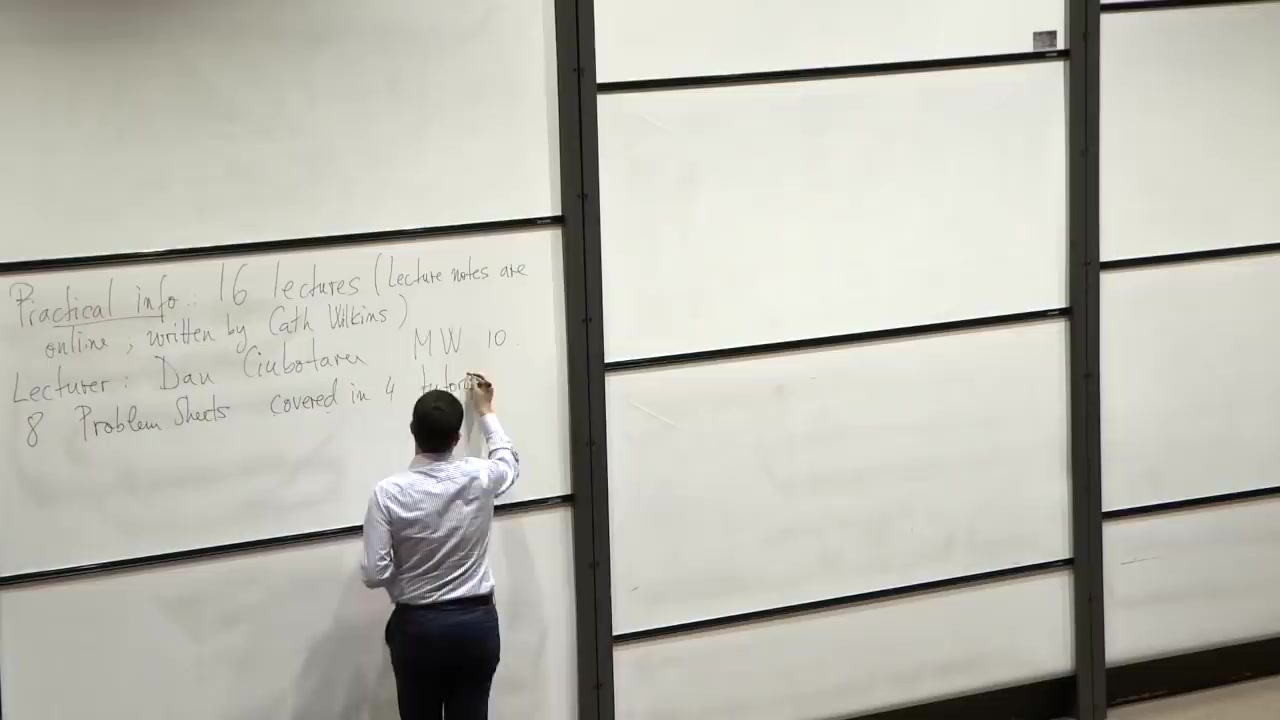 Practical info: 16 lectures (Lecture notes are
online, written by Cath Wilkins)
Lecturer: Dan Ciubotaru MW 10
8 Problem Sheets covered in 4 tutor